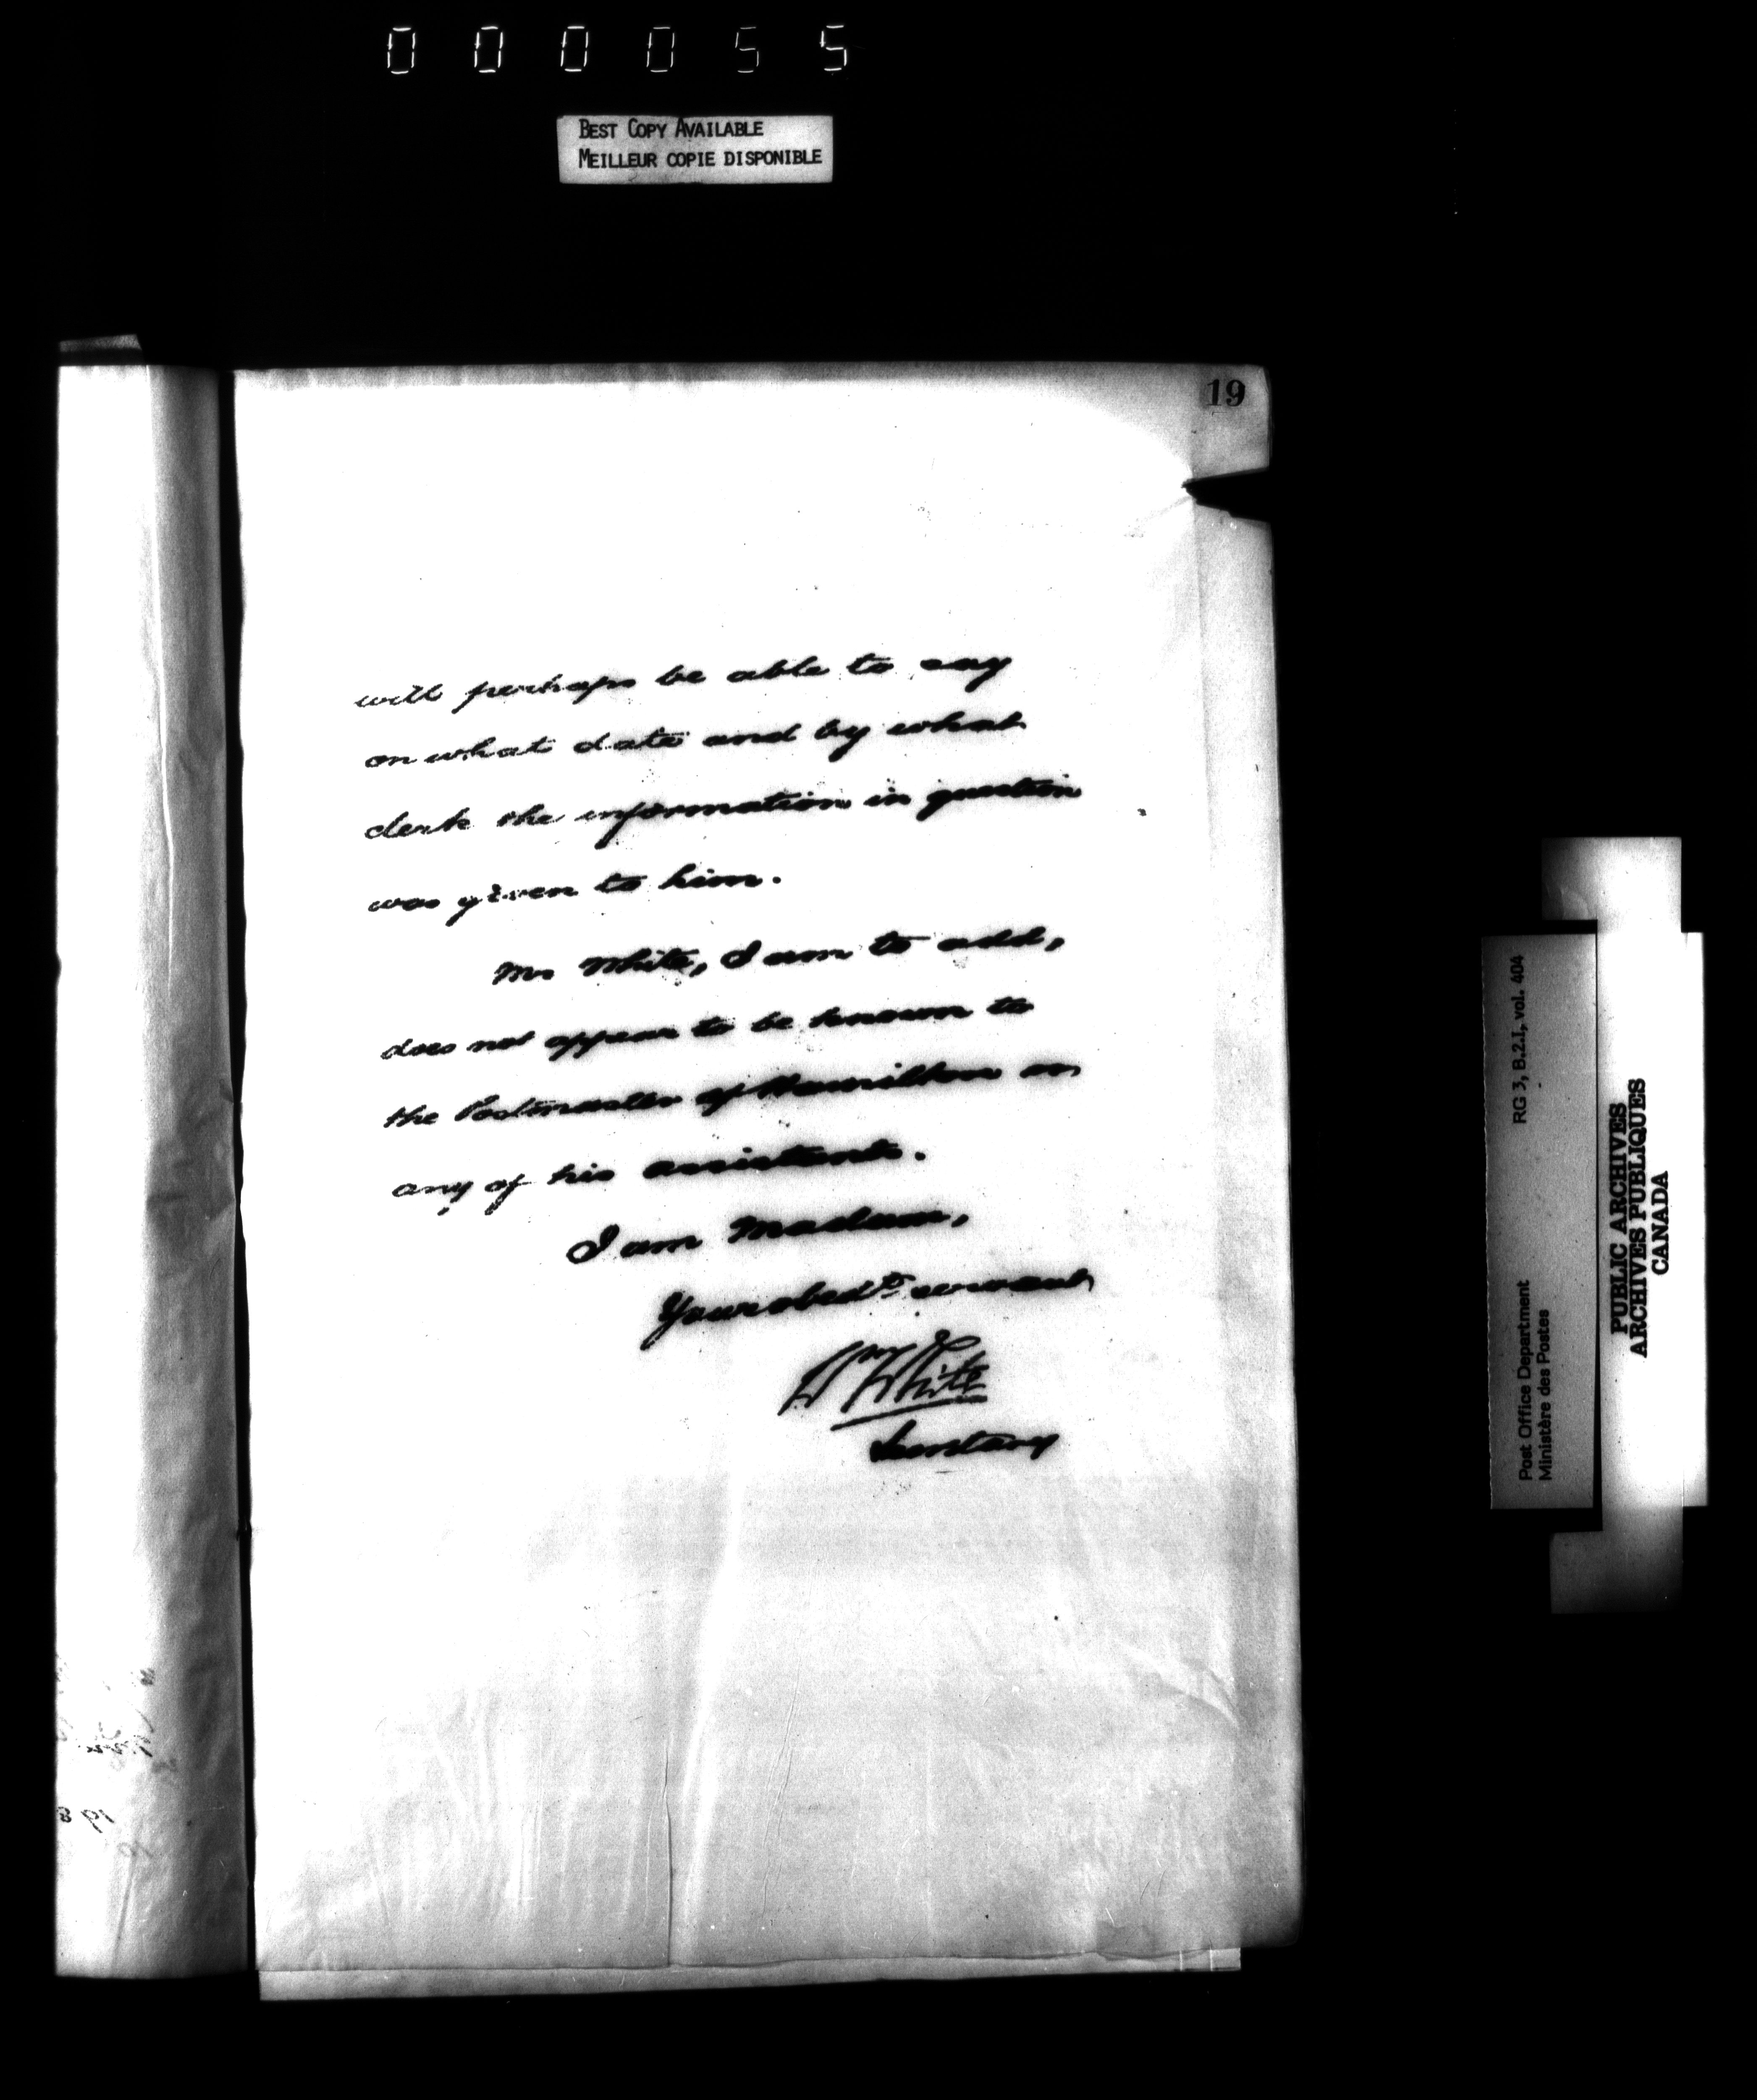 000055
BEST COPY AVAILABLE
MEILLEUR COPIE DISPONIBLE
19
will perhaps be able to say
on what date and by what
clerk the information in question
was given to him.
Mr White, I am to add,
does not appear to be known to
the Postmaster of Hamilton or
any of his assistants.
I am Madam,
Your obedt. servant
Wm White
Secretary
Post Office Department
Ministère des Postes
RG 3, B.2.1, vol. 404
PUBLIC ARCHIVES
ARCHIVES PUBLIQUES
CANADA